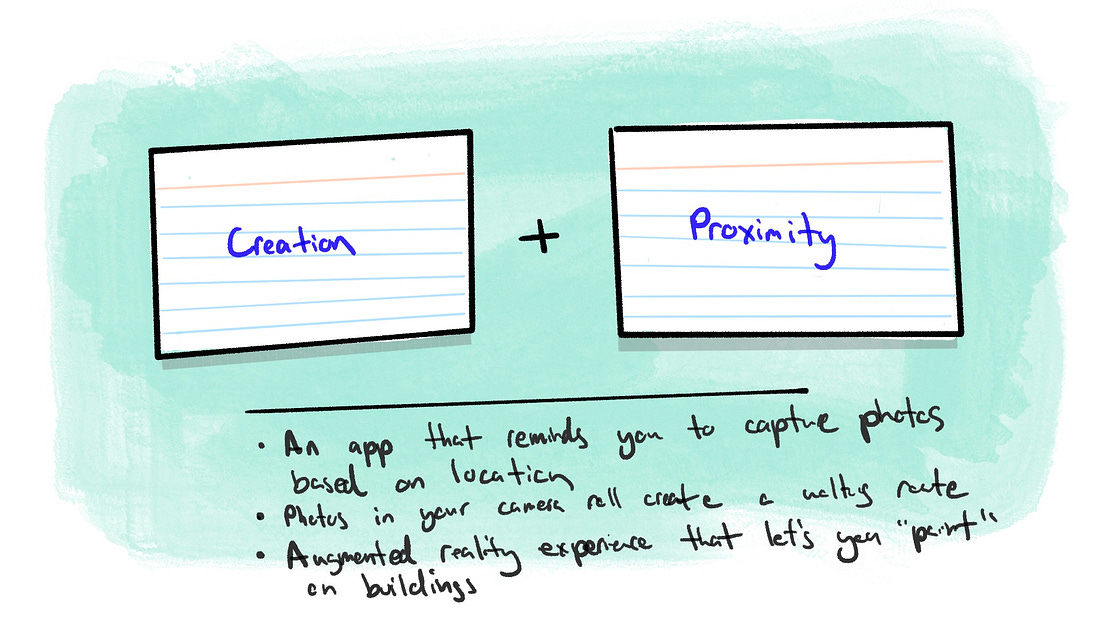 Creation + Proximity
• An app that reminds you to capture photos
based on location
• Photos in your camera roll create a walking route
• Augmented reality experience that let's you "paint"
on buildings